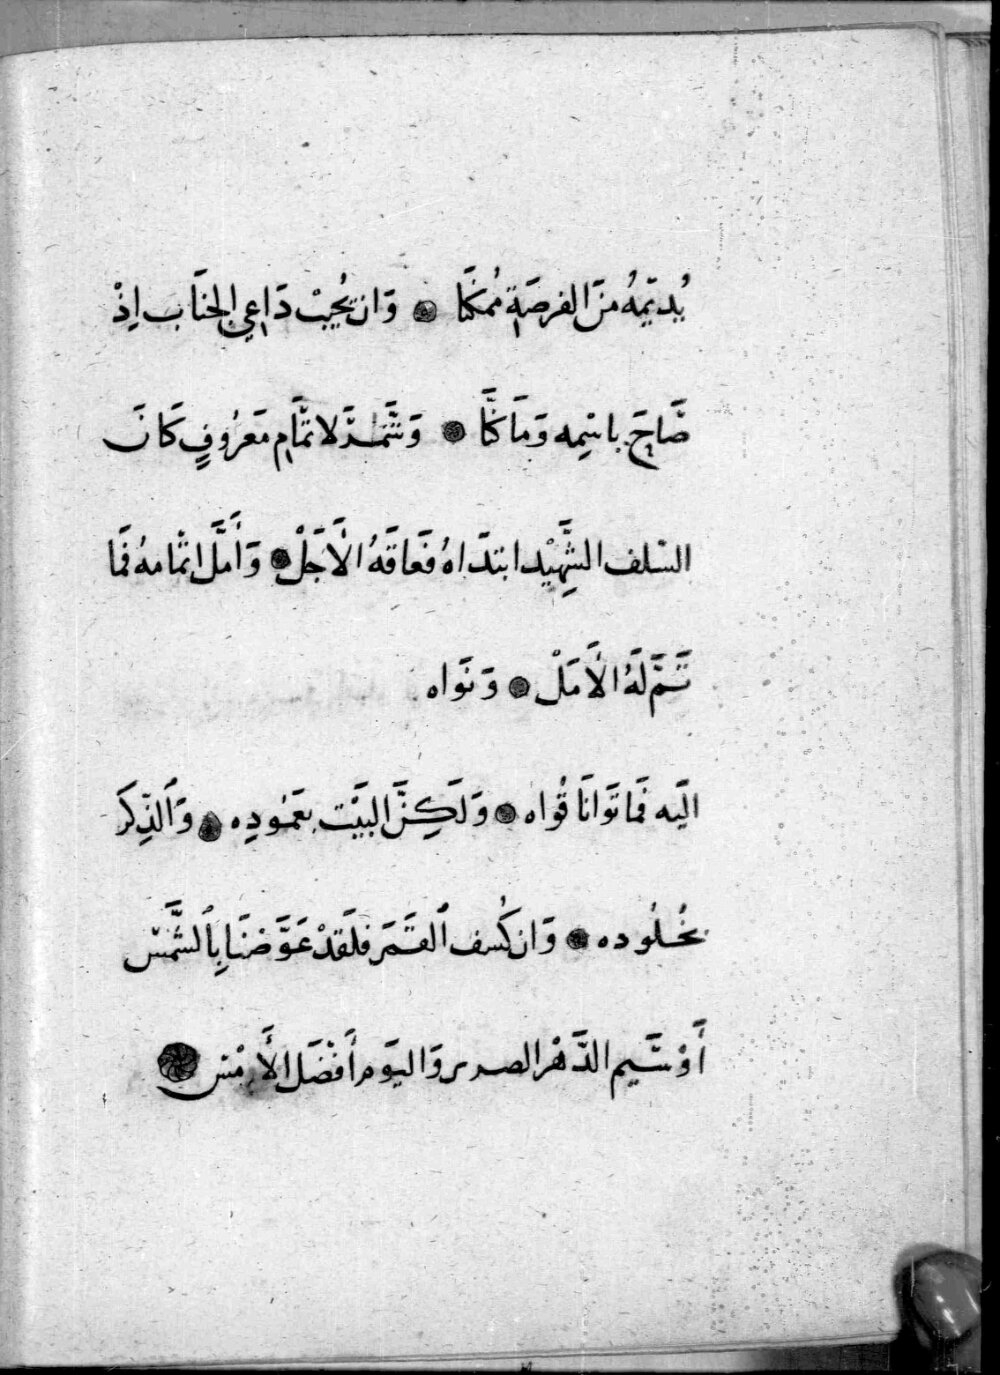 يُدِيّمُهُ مِنَ الفرصَةِ مُمْكَنَا ۞ وَان يُجيبْ دَاعِي الجنَاب اِذْ
صَّاحَ بِاسْمِه وَمَاكَنَّا ۞ وَشَّمَّرَ لاتمَّام مَعَرُوفٍ كَانَ
السّلف الشَّهِيْد ابتدَاهُ فَعَاقَهُ الأَجَلْ ۞ وَأَمَّلَ اتْمامهُ فَمَا
تَمَّ لَهُ الأَمَلْ ۞ وَنَوَاه
اليَه فَمَا تَوَانَا قُوَاه ۞ وَلَكِنَّ البَيْت بِعَمُودِه ۞ وَٱلذِّكرَ
بخُلُوده ۞ وَان كُسف ٱلقَمَر فلَقدْ عَوَّضنَا بِٱلشَّمْس
أَوْ شَيم الدَّهْر الصرير وَاليَوم أَفْضَل الأَمْس ۞